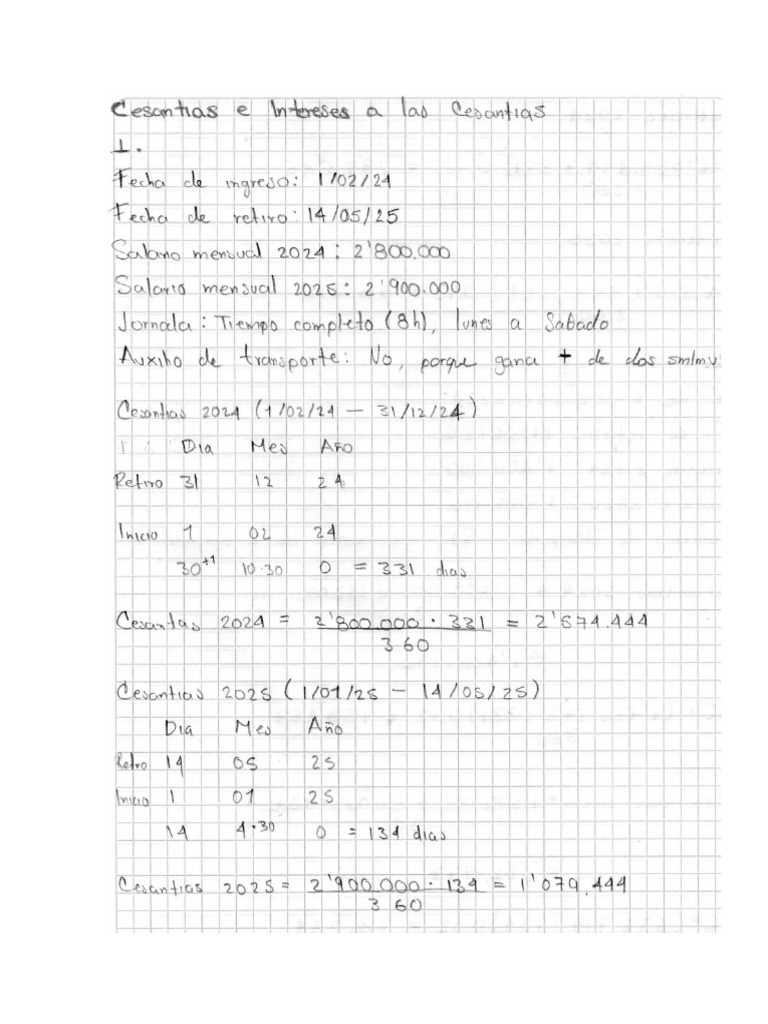 Cesantias e Intereses a las Cesantias
1.
Fecha de ingreso: 1/02/24
Fecha de retiro: 14/05/25
Salario mensual 2024: 2'800.000
Salario mensual 2025: 2'900.000
Jornada: Tiempo completo (8h), lunes a Sabado
Auxilio de transporte: No, porque gana + de dos smlmv
Cesantias 2024 (1/02/24 — 31/12/24)
Dia Mes Año
Retiro 31 12 24
Inicio 1 02 24
30+1 10·30 0 = 331 dias
Cesantas 2024 = 2'800.000 · 331 = 2'574.444
360
Cesantias 2025 (1/01/25 — 14/05/25)
Dia Mes Año
Retro 14 05 25
Inicio 1 01 25
14 4·30 0 = 134 dias
Cesantias 2025 = 2'900.000 · 134 = 1'079.444
360